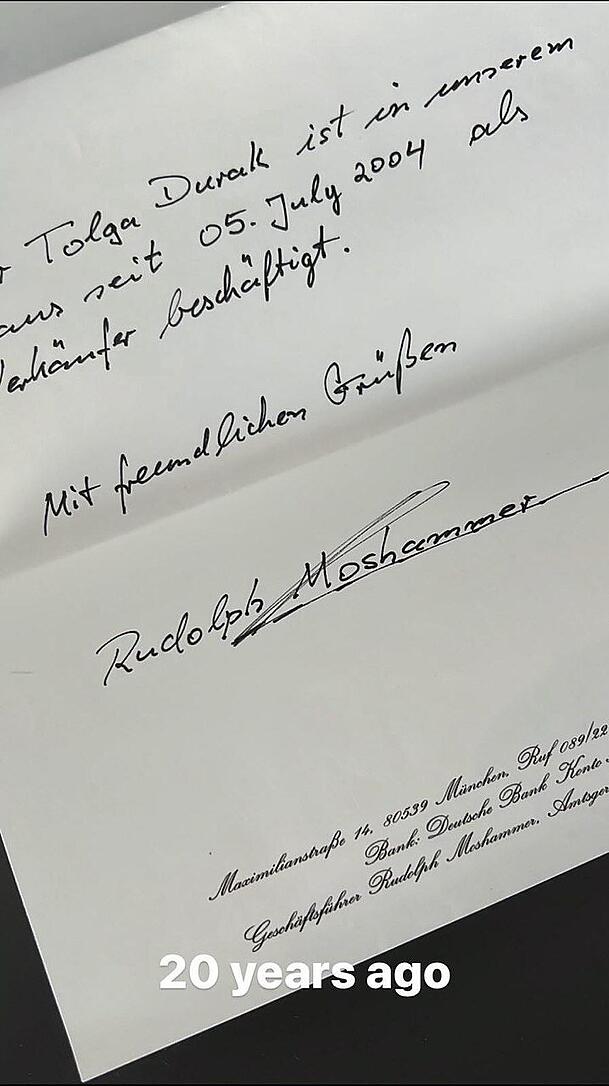 Tolga Durak ist in unserem
aus seit 05. July 2004 als
Verkäufer beschäftigt.
Mit freundlichen Grüßen
Rudolph Moshammer
Maximilianstraße 14, 80539 München, Ruf 089/22
Bank: Deutsche Bank Konto
Geschäftsführer Rudolph Moshammer, Amtsger
20 years ago